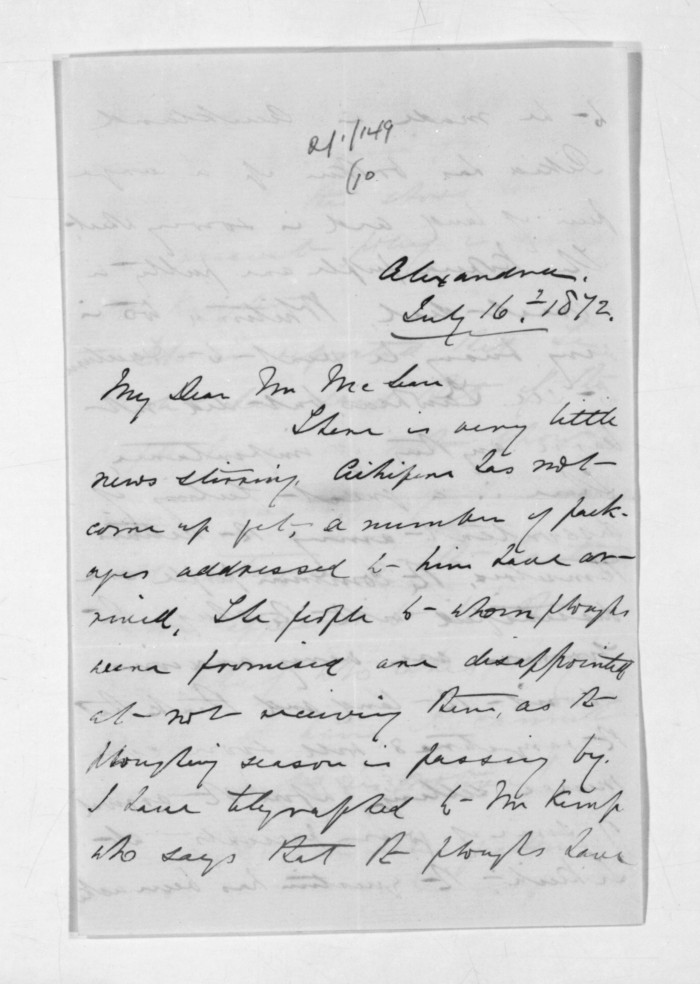 Alexandra.
July 16th 1872.
My Dear Mr McLean
There is very little
news stirring. Aihipene has not
come up yet, a number of pack-
ages addressed to him have ar-
rived, The people to whom ploughs
were promised are disappointed
at not receiving them, as the
ploughing season is passing by.
I have telegraphed to Mr Kemp
who says that the ploughs have